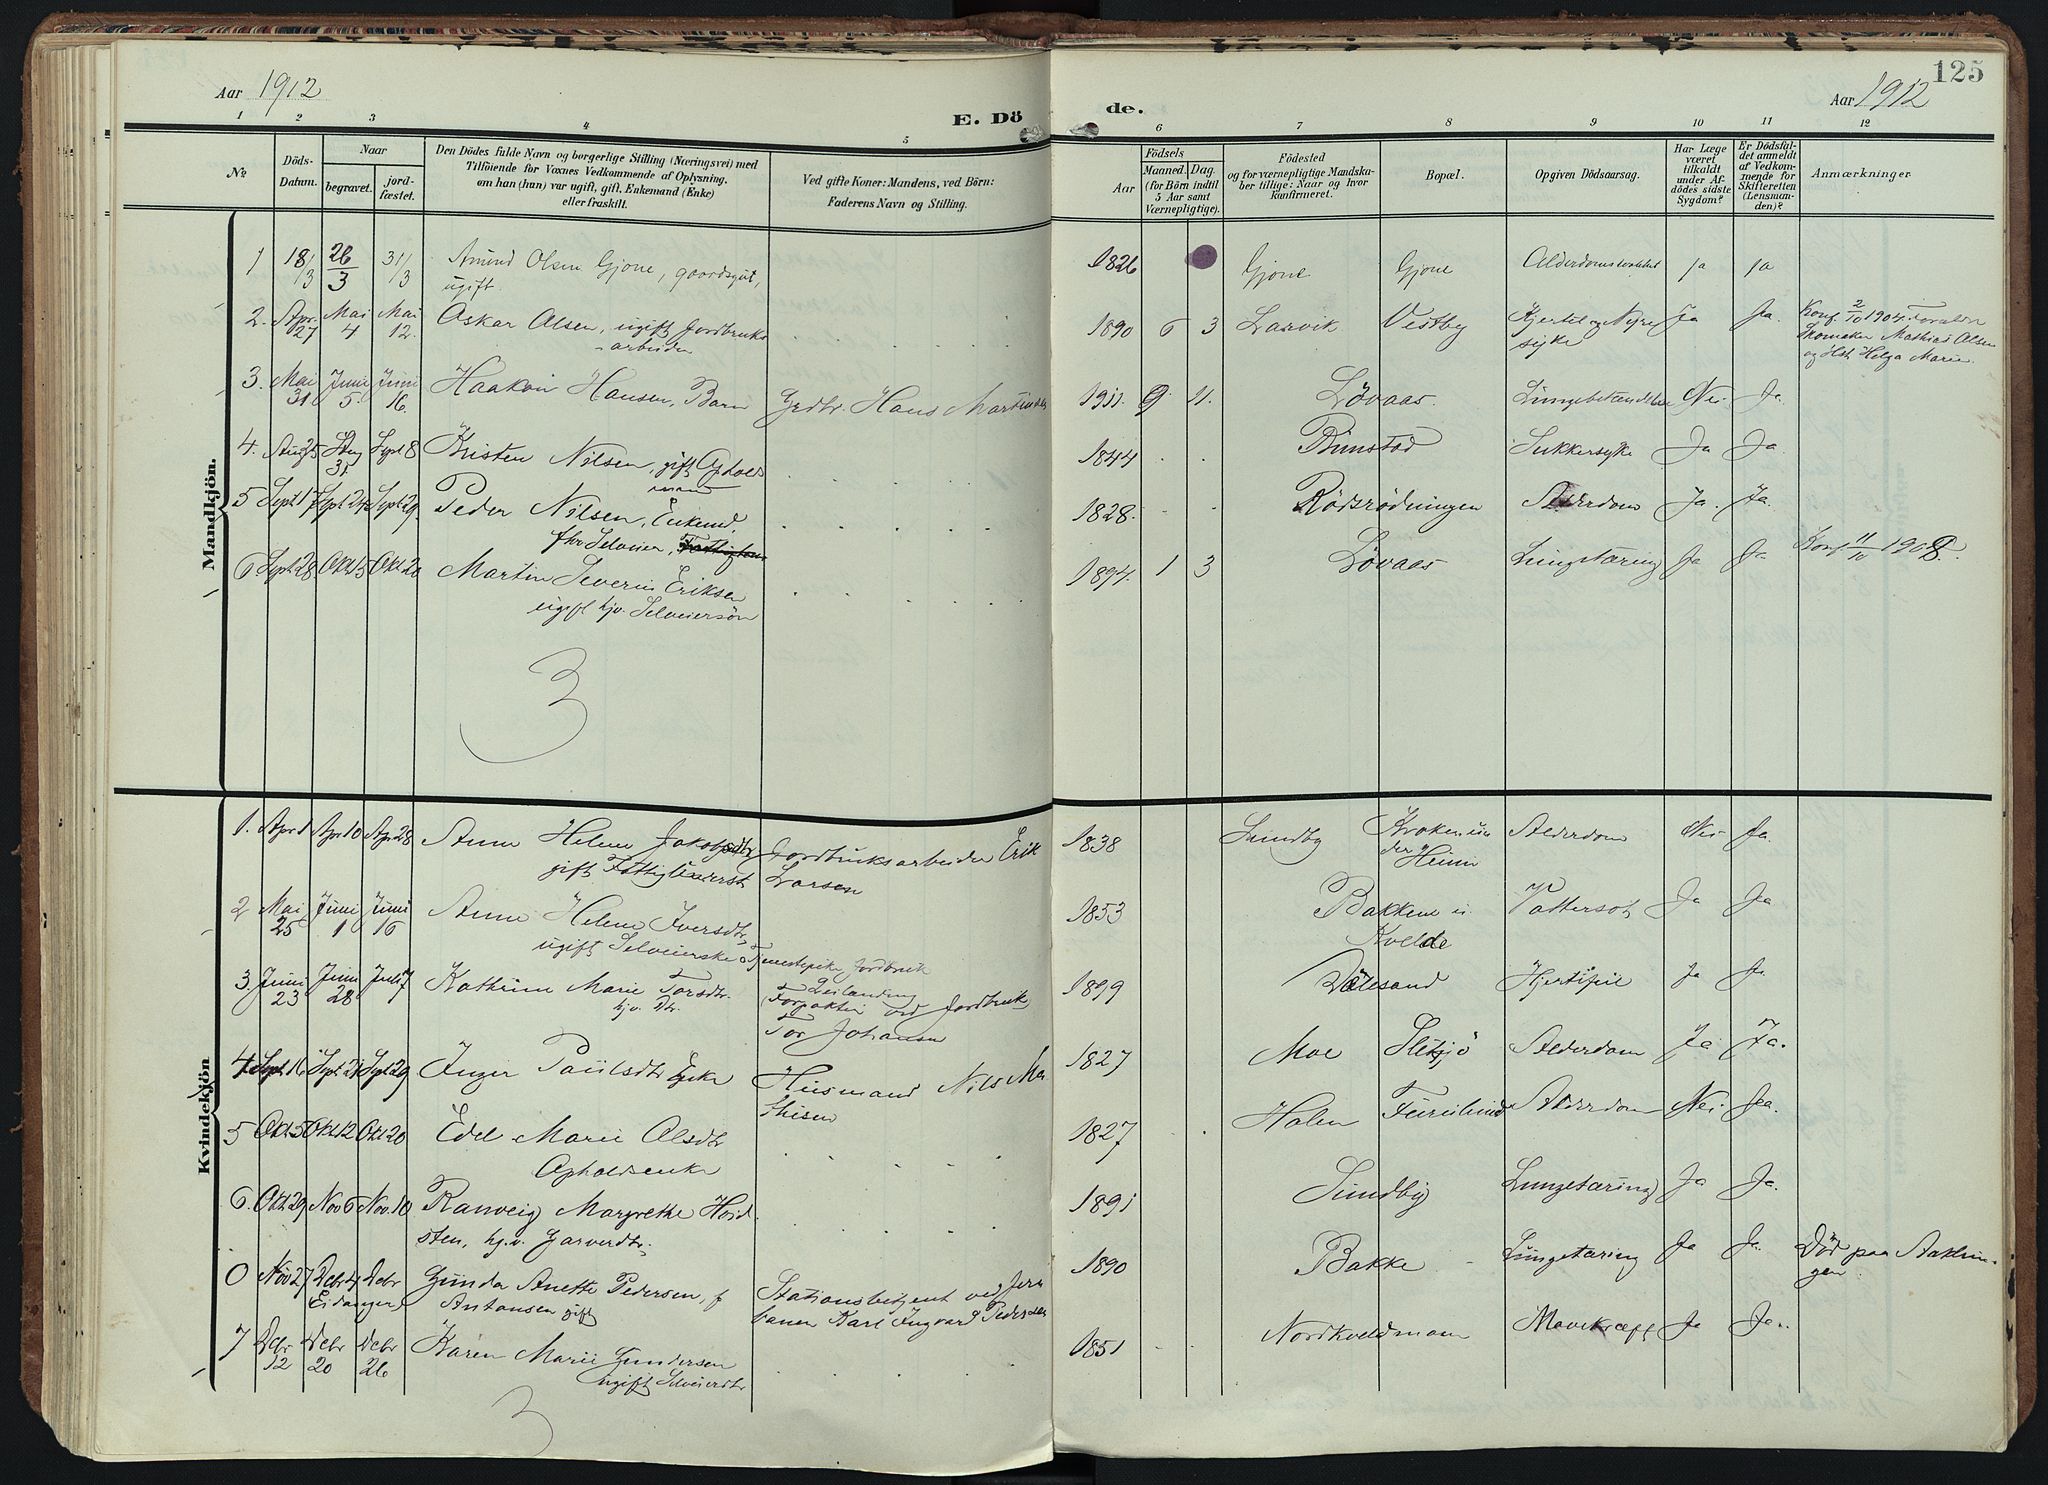 125
Aar 1912
E. Döde.
Aar 1912
1 2 3 4 5 6 7 8 9 10 11 12
№
Döds-Datum.
Naar
begravet.
jordfæstet.
Den Dödes fulde Navn og borgerlige Stilling (Næringsvei) med
Tilföiende for Voxnes Vedkommende af Oplysning,
om han (hun) var ugift, gift, Enkemand (Enke)
eller fraskilt.
Ved gifte Koner: Mandens, ved Börn:
Faderens Navn og Stilling.
Födsels
Aar
Maaned. Dag.
(for Börn indtil
5 Aar samt
Værnepligtige).
Födested
og for værnepligtige Mandskaber
tillige: Naar og hvor
konfirmeret.
Bopæl.
Opgiven Dödsaarsag.
Har Læge
været
tilkaldt
under Afdödes
sidste
Sygdom?
Er Dödsfaldet
anmeldt
af Vedkommende
for
Skifteretten
(Lensmanden)?
Anmærkninger
Mandkjön.
1 18/3 26/3 31/3 Amund Olsen Gjone, gaardsgut, 1826 Gjone Gjone ja ja
ugift.
2. Apr. 27 Mai 4 Mai 12. Oskar Olsen, ugift Jordbruks 1890 6 3 Larvik Vestby Hjerte og Nyre Ja Ja. Konf. 2/10 1904. Forældre
arbeider syke Skomaker Mathias Olsen
og Hst. Helga Marie
3. Mai 31 Juni 5. Juni 16. Haakon Hansen, Barn Grdbr. Hans Martinsen 1911. 9 11. Løvaas. Lungebetændelse Nei Ja.
4. Aug 25 Aug 31. Sept 8 Kristen Nilsen, gift 1844 Rimstad Sukkersyke Ja Ja.
mand
5 Sept 17 Sept 24 Sept 29. Peder Nilsen, Enkemd. 1828. Rödsrödningen Alderdom Ja. Ja.
fhv. Selveier,
6 Sept 28 Okt 5 Okt 20 Martin Severin Eriksen 1894. 1 3 Løvaas Lungetæring Ja Ja Konf 11/10 1908.
ugift hjv. Selveiersön
3
Kvindekjön
1. Apr 1 Apr 10 Apr 28 Anne Helene Jakobsdtr Jordbruksarbeider Erik 1838 Sundby Kroken un Alderdom Nei Ja.
gift Fattiglemmerst Larsen der Heim
2 Mai 25 Juni 1 Juni 16 Anne Helene Iversdtr, 1853 Bakken i Vattersot Ja Ja
ugift Selveierske Tjenestepike Jordbruk Kvelde
3. Juni 23 Juni 28 Juli 7 Kathrine Marie Torsdtr. 1899 Hjertefeil Ja Ja.
hjv. Dtr. Forpakter ved Jordbruk
Tor Johansen
4 Sept 16 Sept 21 Sept 29 Inger Paulsdtr Enke Husmand Nils Ma 1827 Moe Sletsjö Alderdom Ja. Ja.
thisen
5 Okt 5 Okt 12 Okt 20 Edel Marie Olsdtr 1827 Holen Furulund Alderdom Nei Ja.
Opholdsenke
6. Okt 29 Nov 6 Nov. 10 Ranveig Margrethe Hvid 1891 Sundby Lungetæring Ja Ja.
sten, hj.v. Garverdtr.
0 Nov 27 Debr 4 Debr Gunda Anette Pedersen, f Stationsbetjent ved Jern 1890 Bakke Lungetæring Ja Ja. Död paa Aaklungen
Eidanger Antonsen gift banen Karl Ingvard Pedersen
7 Dcbr 12 Dcbr 20 Dcbr 26 Karen Marie Gundersen 1851 Nordkveldmoen Mavekræft Ja Ja.
ugift Selveierdtr
3